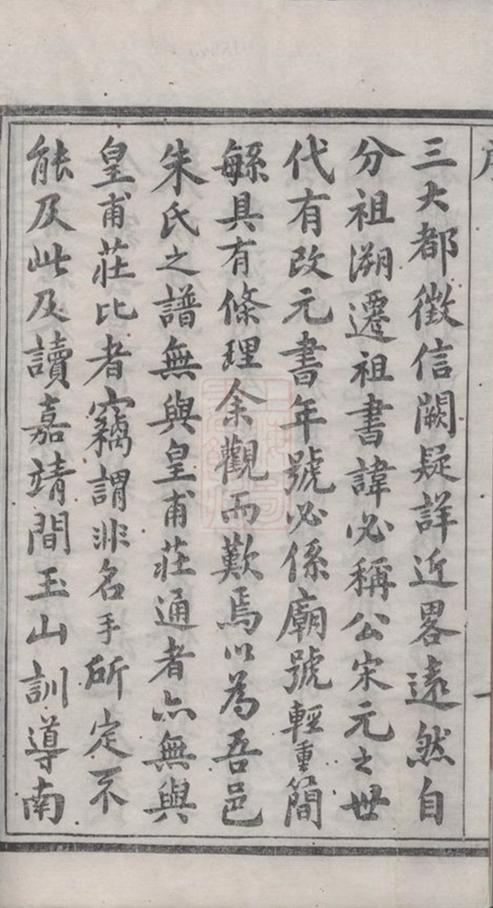 三大都徵信闕疑詳近畧遠然自
分祖溯遷祖書諱必稱公宋元之世
代有改元書年號必係廟號輕重簡
緐具有條理余觀而歎焉以為吾邑
朱氏之譜無與皇甫莊通者亦無與
皇甫莊比者竊謂非名手斫定不
能及此及讀嘉靖間玉山訓導南